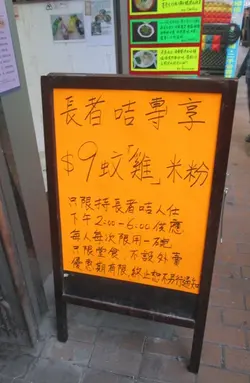 長者咭尊享
$9蚊「雞」米粉
只限持長者咭人仕
下午2:00-6:00供應
每人每次限用一碗
只限堂食 不設外賣
優惠期有限,終止恕不另行通知